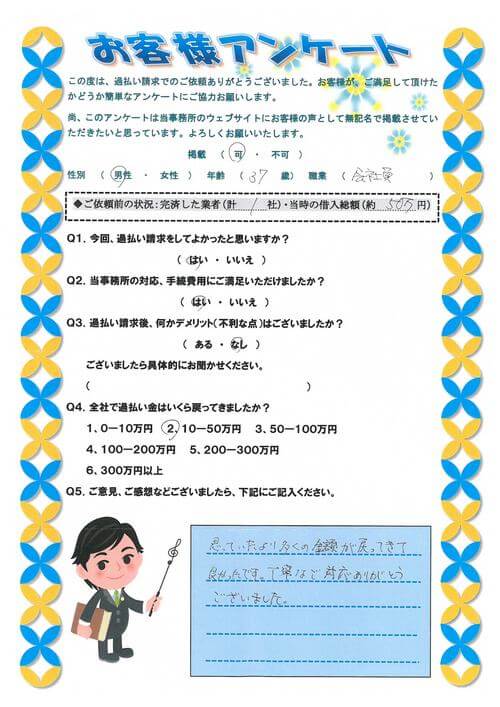 お客様アンケート
この度は、過払い請求でのご依頼ありがとうございました。お客様が、ご満足して頂けた
かどうか簡単なアンケートにご協力お願いします。
尚、このアンケートは当事務所のウェブサイトにお客様の声として無記名で掲載させてい
ただきたいと思っています。よろしくお願いいたします。
掲載 ( 可 ・ 不可 )
性別 ( 男性 ・ 女性 ) 年齢 ( 37 歳) 職業 ( 会社員 )
◆ご依頼前の状況:完済した業者(計 1 社)・当時の借入総額(約 50万 円)
Q1. 今回、過払い請求をしてよかったと思いますか?
( はい ・ いいえ )
Q2. 当事務所の対応、手続費用にご満足いただけましたか?
( はい ・ いいえ )
Q3. 過払い請求後、何かデメリット(不利な点)はございましたか?
( ある ・ なし )
ございましたら具体的にお聞かせください。
( )
Q4. 全社で過払い金はいくら戻ってきましたか?
1、0ー10万円 2、10ー50万円 3、50ー100万円
4、100ー200万円 5、200ー300万円
6、300万円以上
Q5. ご意見、ご感想などございましたら、下記にご記入ください。
思っていたより多くの金額が戻ってきて
良かったです。丁寧なご対応ありがとう
ございました。